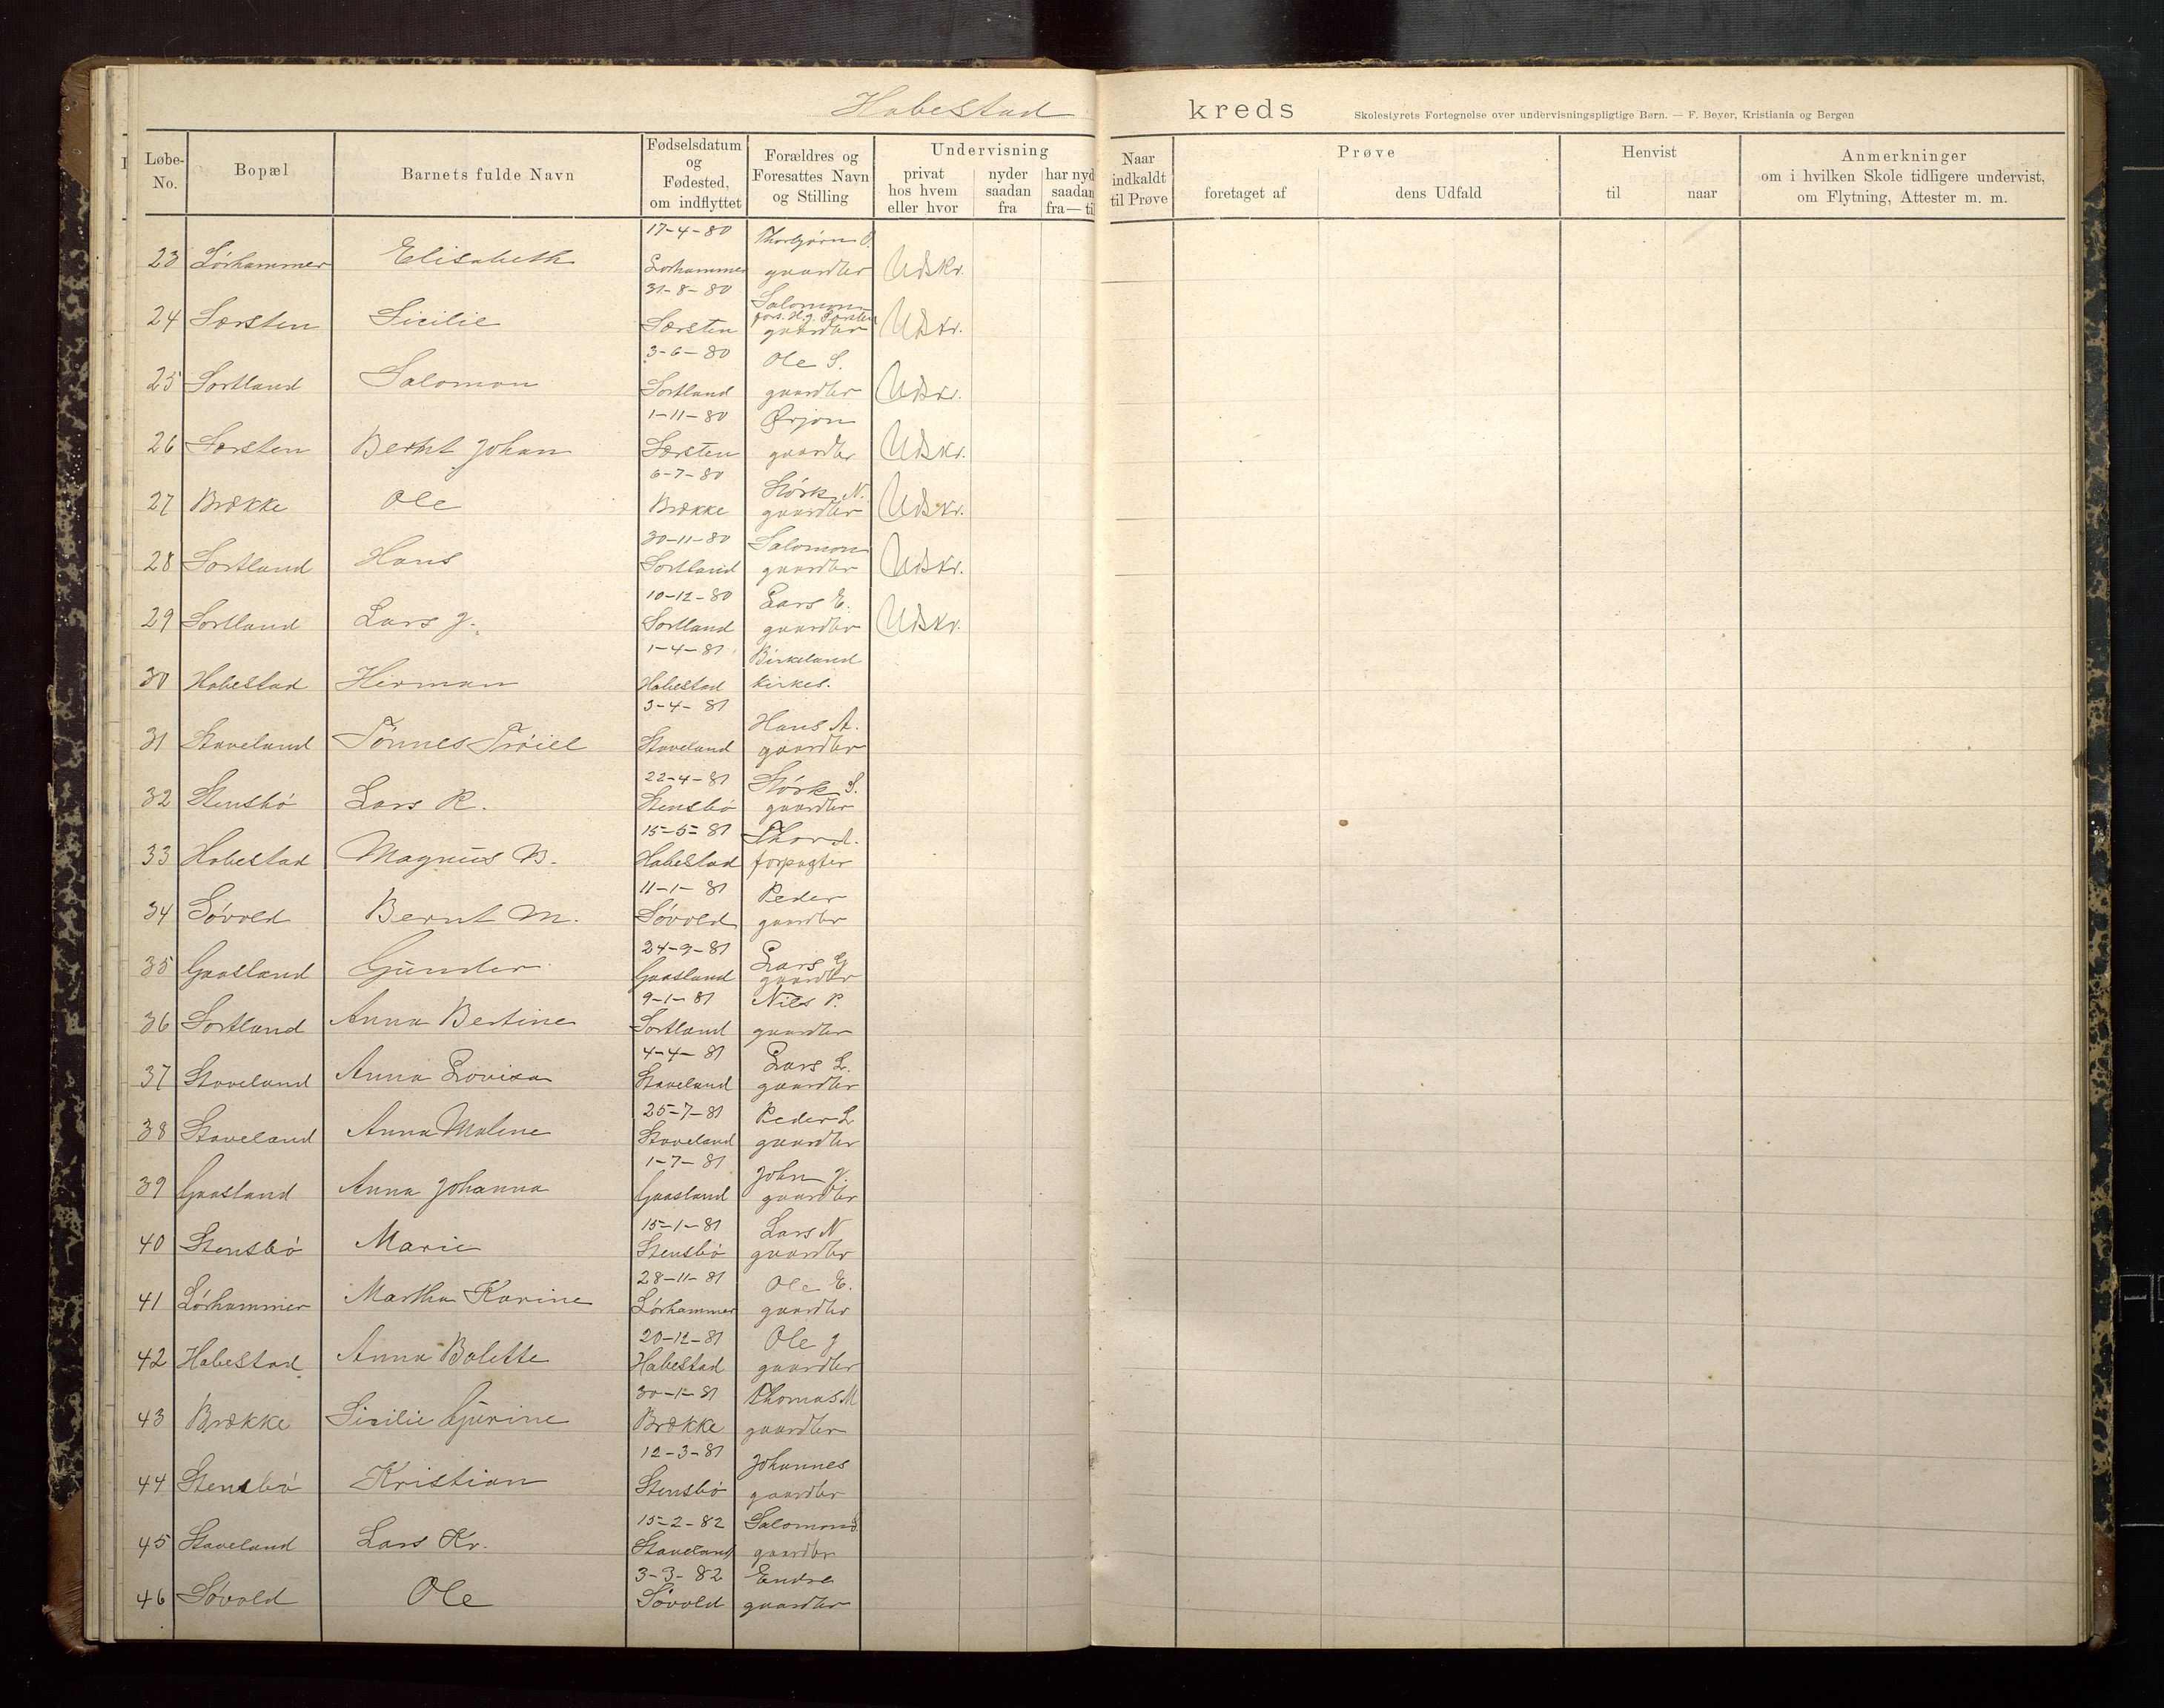 Habestad kreds
Skolestyrets Fortegnelse over undervisningspligtige Børn. — F. Beyer, Kristiania og Bergen
Løbe-No. Bopæl Barnets fulde Navn Fødselsdatum og Fødested, om indflyttet Forældres og Foresattes Navn og Stilling Undervisning privat hos hvem eller hvor nyder saadan fra har nyd saadan fra — ti Naar indkaldt til Prøve Prøve foretaget af dens Udfald Henvist til naar Anmerkninger om i hvilken Skole tidligere undervist, om Flytning, Attester m. m.
17-4-80 Thorbjørn O.
23 Lørhammer Elisabeth Lørhammer gaardbr Udskr.
31-8-80 Salomon
24 Særsten Sicilie Særsten gaardbr Udskr.
3-6-80 Ole S.
25 Sortland Salomon Sortland gaardbr Udskr.
1-11-80 Ørjan
26 Særsten Bernt Johan Særsten gaardbr Udskr.
6-7-80 Størk N.
27 Brække Ole Brække gaardbr Udskr.
30-11-80 Salomon
28 Sortland Hans Sortland gaardbr Udskr.
10-12-80 Lars E.
29 Sortland Lars J. Sortland gaardbr Udskr.
1-4-81 Birkeland
30 Habestad Herman Habestad kirkes.
3-4-81 Hans A.
31 Staveland Tønnes Trøiel Staveland gaardbr
22-4-81 Størk S.
32 Stensbø Lars R. Stensbø gaardbr
15-5-81 Thord.
33 Habestad Magnus B. Habestad forpagter
11-1-81 Peder
34 Søvold Bernt M. Søvold gaardbr
24-9-81 Lars G
35 Gaasland Gunder Gaasland gaardbr
9-1-81 Nils P.
36 Sortland Anna Bertine Sortland gaardbr
4-4-81 Lars L.
37 Staveland Anna Lovisa Staveland gaardbr
25-7-81 Peder L
38 Staveland Anna Malene Staveland gaardbr
1-7-81 John J.
39 Gaasland Anna Johanna Gaasland gaardbr
15-1-81 Lars N
40 Stensbø Marie Stensbø gaardbr
28-11-81 Ole E.
41 Lørhammer Martha Karine Lørhammer gaardbr
20-12-81 Ole J
42 Habestad Anna Bolette Habestad gaardbr
30-1-81 Thomas M
43 Brække Sicilie Gurine Brække gaardbr
12-3-81 Johannes
44 Stensbø Kristian Stensbø gaardbr
15-2-82 Salomon S.
45 Staveland Lars Kr. Staveland gaardbr
3-3-82 Endre
46 Søvold Ole Søvold gaardbr